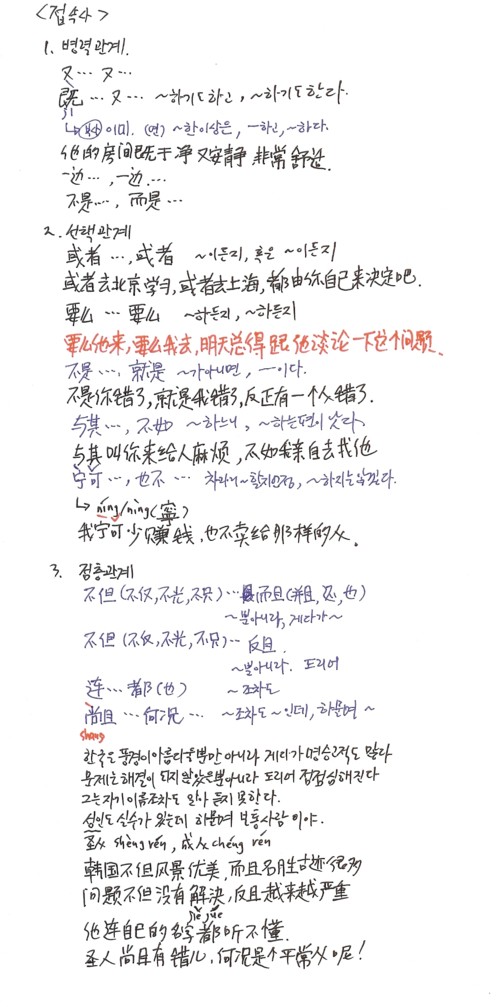 <접속사>
1. 병력관계.
又… 又…
既 … 又 … ~하기도하고, ~하기도한다.
jì
↳ 이미. (연) ~한이상은, ~하고, ~하다.
他的房间既干净 又安静 非常舒适.
一边…, 一边…
不是…, 而是…
2. 선택관계
或者 …, 或者 ~이든지, 혹은 ~이든지
或者去北京学习, 或者去上海, 都由你自己来决定吧.
要么 … 要么 ~하든지, ~하든지
要么他来, 要么我去, 明天总得跟他谈论一下这个问题.
不是…, 就是 ~가아니면, ~이다.
不是你错了, 就是我错了, 反正有一个人错了.
与其…, 不如 ~하느니, ~하는편이 낫다.
与其叫你来给人麻烦, 不如我亲自去找他
宁可 …, 也不 … 차라리~할지언정, ~하지는않겠다.
↳ níng/nìng (寧)
我宁可少赚钱, 也不卖给那样的人.
3. 점층관계
不但 (不仅, 不光, 不只) … 而且 (并且, 还, 也)
~뿐아니라, 게다가~
不但 (不仅, 不光, 不只) … 反且.
~뿐아니라. 도리어
连 … 都 (也) ~조차도
尚且 … 何况 … ~조차도~인데, 하물며 ~
shàng
한국은 풍경이아름다울뿐만 아니라 게다가 명승고적도 많다
문제는해결이 되지 않았을뿐아니라 도리어 점점심해진다
그는자기이름조차도 알아 듣지 못한다.
성인도 실수가 있는데 하물며 보통사람이야.
圣人 shèng rén, 成人 chéng rén
韩国不但风景优美, 而且名胜古迹很多
问题不但没有解决, 反且越来越严重
jiě jué
他连自己的名字都听不懂.
圣人尚且有错儿, 何况是个平常人呢!